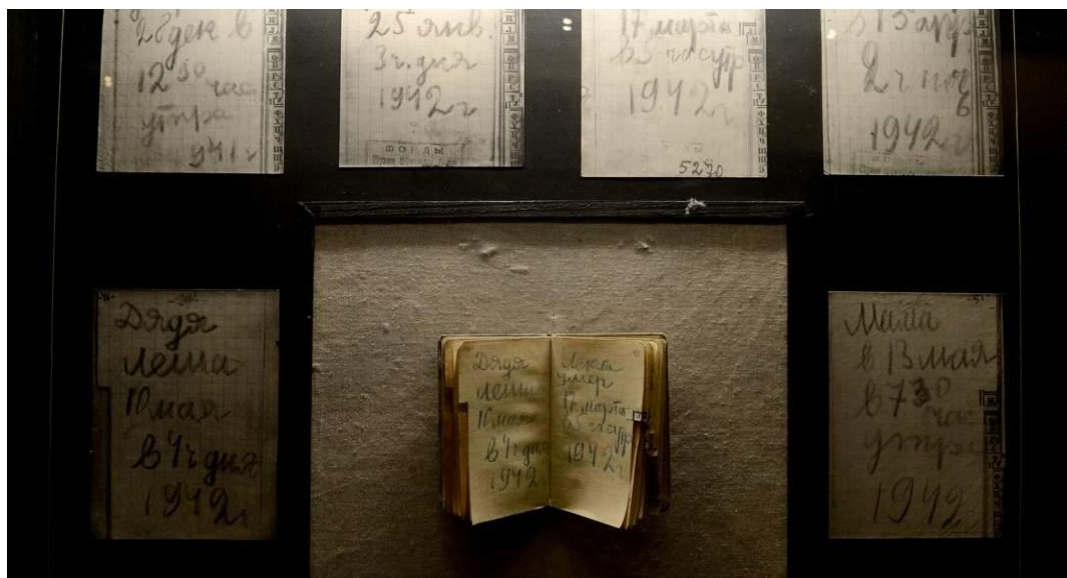 28 дек в
12 30 час
утра
941 г
25 янв.
3 ч. дня
1942 г
ФОНДЫ
17 марта
в 5 час утр
1942 г
5270
2 ч ноч
1942 г
Дядя
Леша
10 мая
в 4 ч дня
1942 г
Дядя
Леша
10 мая
в 4 ч дня
1942
Лека
умер
17 марта
в 5 час утр
1942 г
Мама
в 13 мая
в 7 30
час
утра
1942